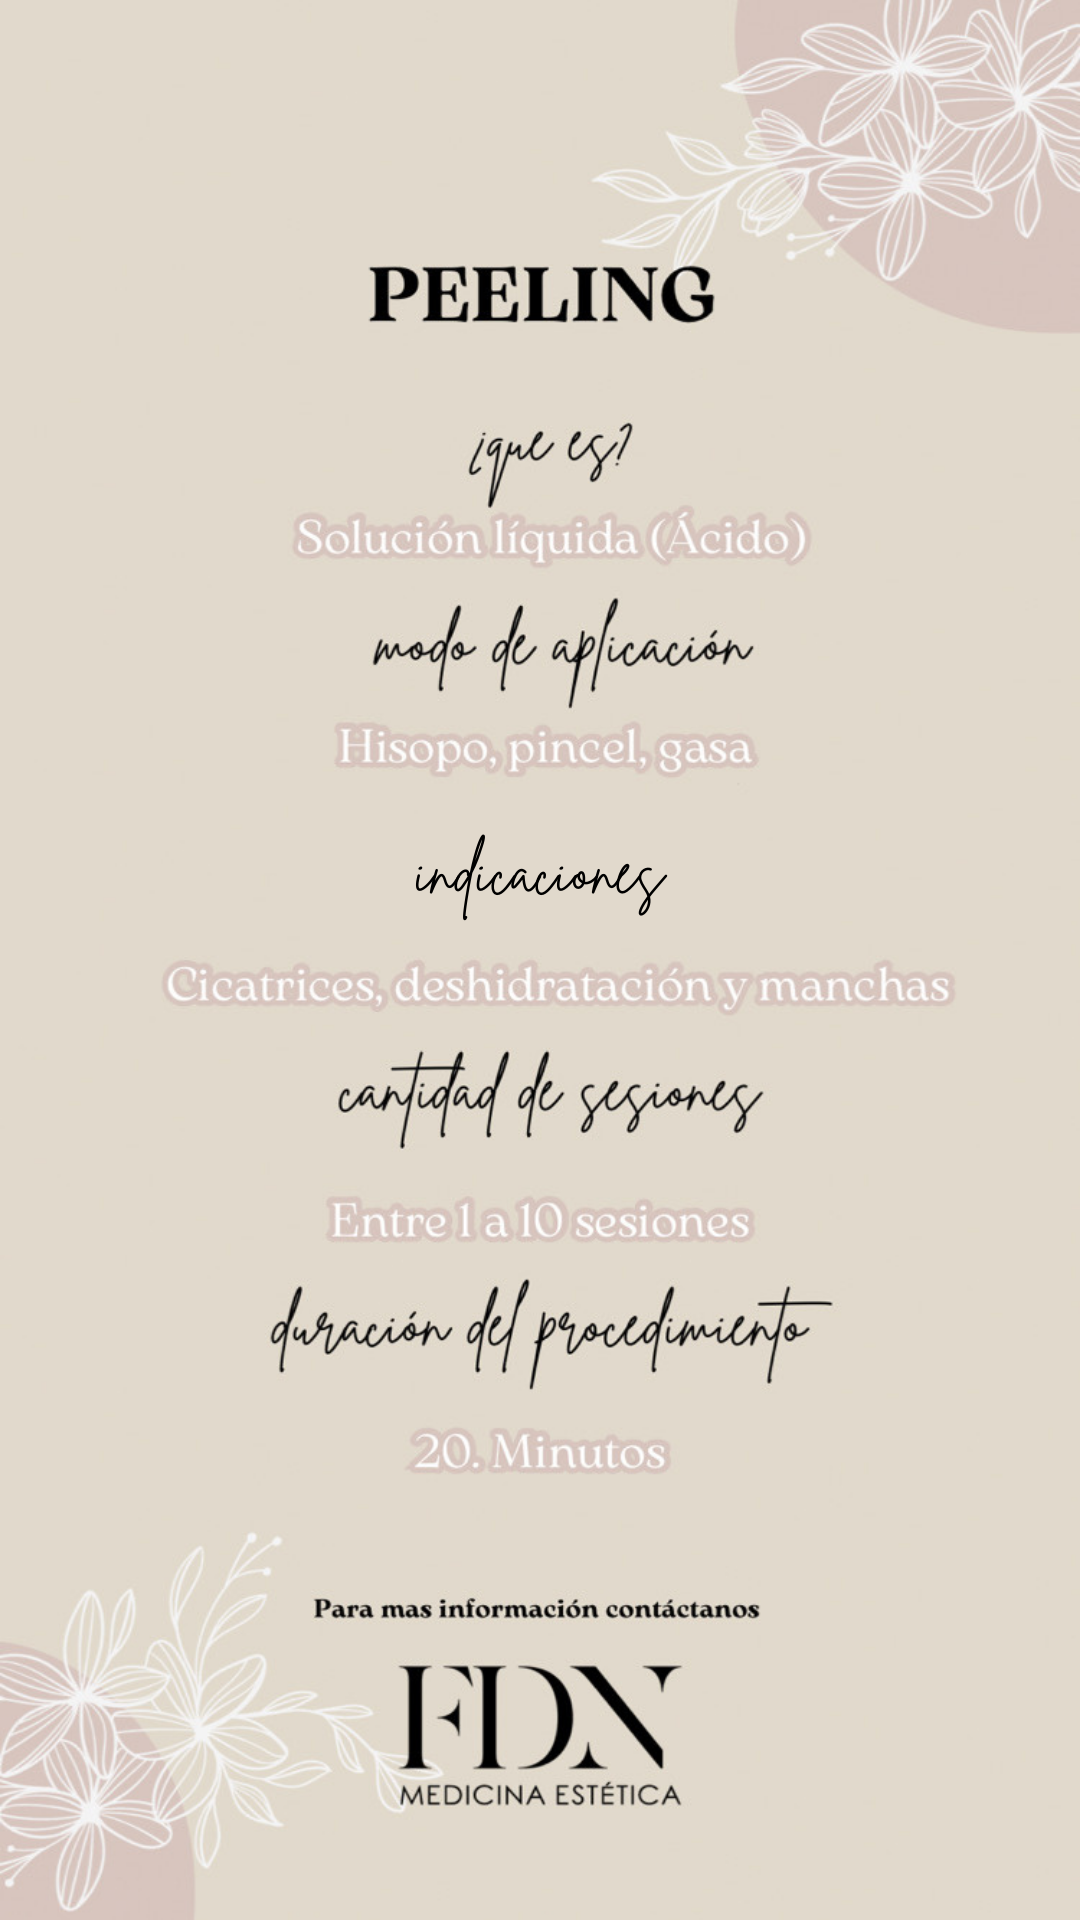 PEELING
¿que es?
Solución líquida (Ácido)
modo de aplicación
Hisopo, pincel, gasa
indicaciones
Cicatrices, deshidratación y manchas
cantidad de sesiones
Entre 1 a 10 sesiones
duración del procedimiento
20. Minutos
Para mas información contáctanos
FDN
MEDICINA ESTÉTICA